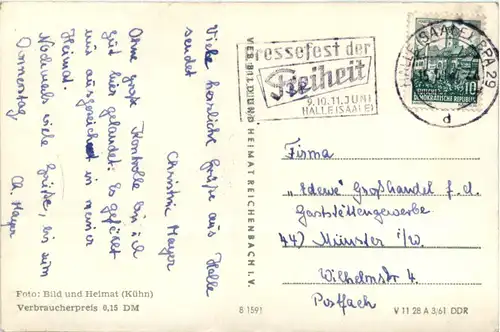 Viele herzliche Grüße aus Halle
sendet
Christine Mayer
Ohne große Kontrolle bin ich
gut hier gelandet. Es gefällt
mir ausgezeichnet in meiner
Heimat.
Nochmals viele Grüße, bis zum
Donnerstag
Ch. Mayer
Foto: Bild und Heimat (Kühn)
Verbraucherpreis 0,15 DM
VERLAG BILD UND HEIMAT REICHENBACH I. V.
B 1591
Pressefest der
Freiheit
9. 10. 11. JUNI
HALLE (SAALE)
HALLE (SAALE) SPA 29
d
10
DEMOKRATISCHE REPUBLIK
Firma
„Edewe" Großhandel f. d.
Gaststättengewerbe
44) Münster i/W.
Wilhelmstr. 4
Postfach
V 11 28 A 3/61 DDR